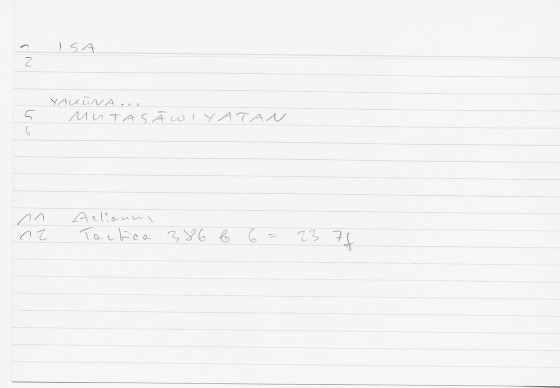 1 ISA
2
YAKŪNA...
5 MUTASĀWIYATAN
6
11 Aeliani
12 Tactica 386 b 6 = 23.7f